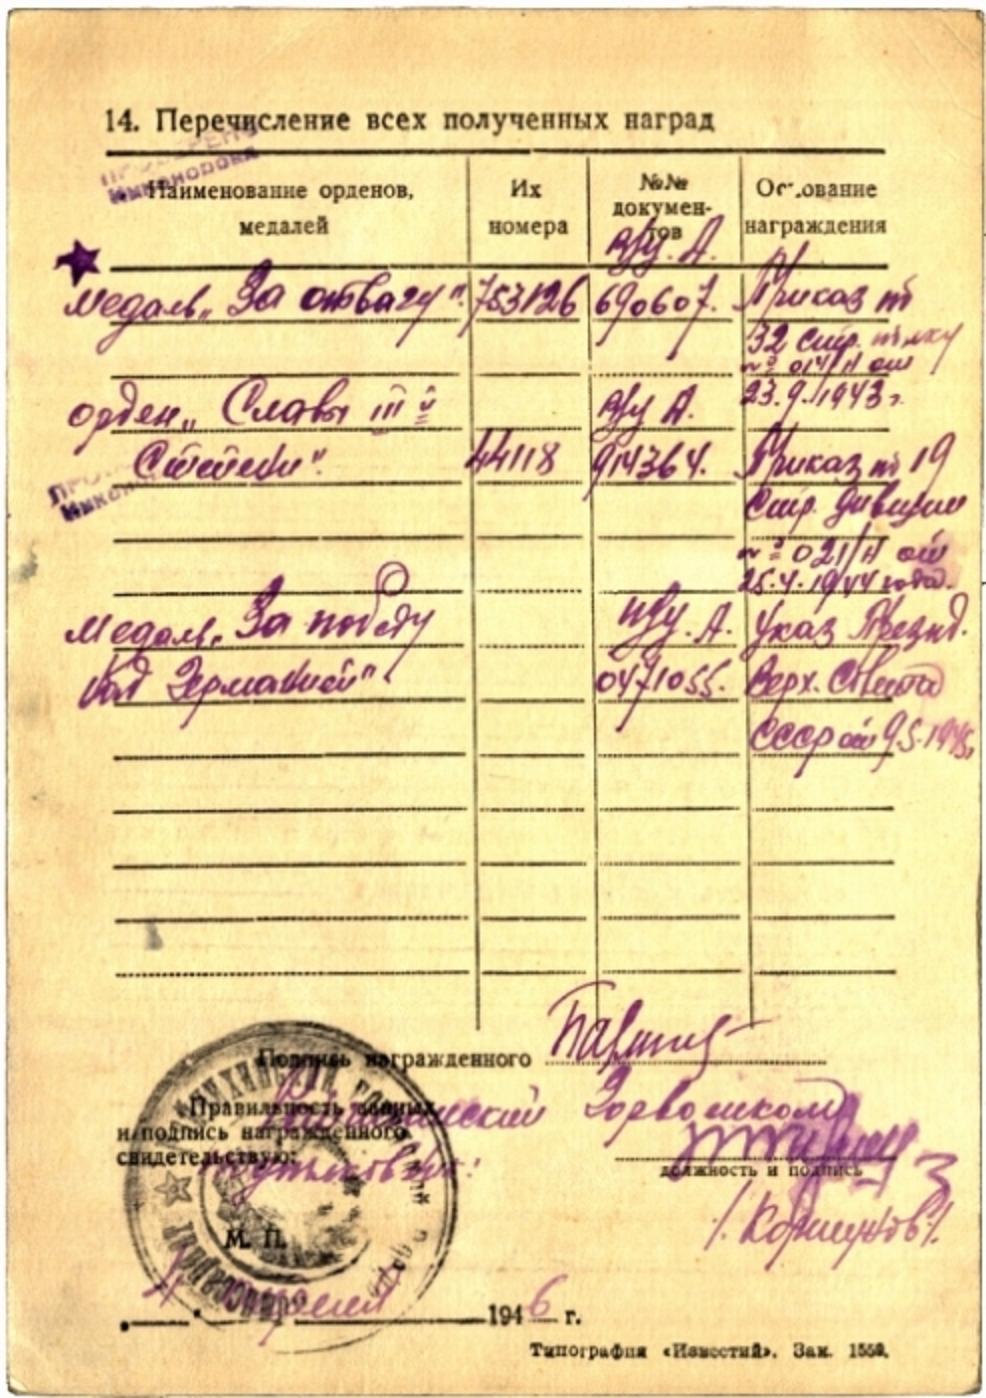 14. Перечисление всех полученных наград
Наименование орденов, медалей
Их номера
№№ документов
Основание награждения
в/у. А.
Медаль „За отвагу". 753126 690607. Приказ по
32 стр. полку
№ 014/н от
23.9.1943г.
орден „Славы III й
Степени". 44118 в/у А. 914364. Приказ по 19
Стр. дивизии
№ 021/н от
25.4.1944 года.
Медаль „За победу А. Указ Презид.
над Германией" 0471055. Верх. Совета
СССР от 9.5.1945г
Подпись награжденного
Правильность данных
и подпись награжденного
свидетельствую:
Горвоенком
должность и подпись
М. П.
1946 г.
Типография «Известий». Зак. 1559.